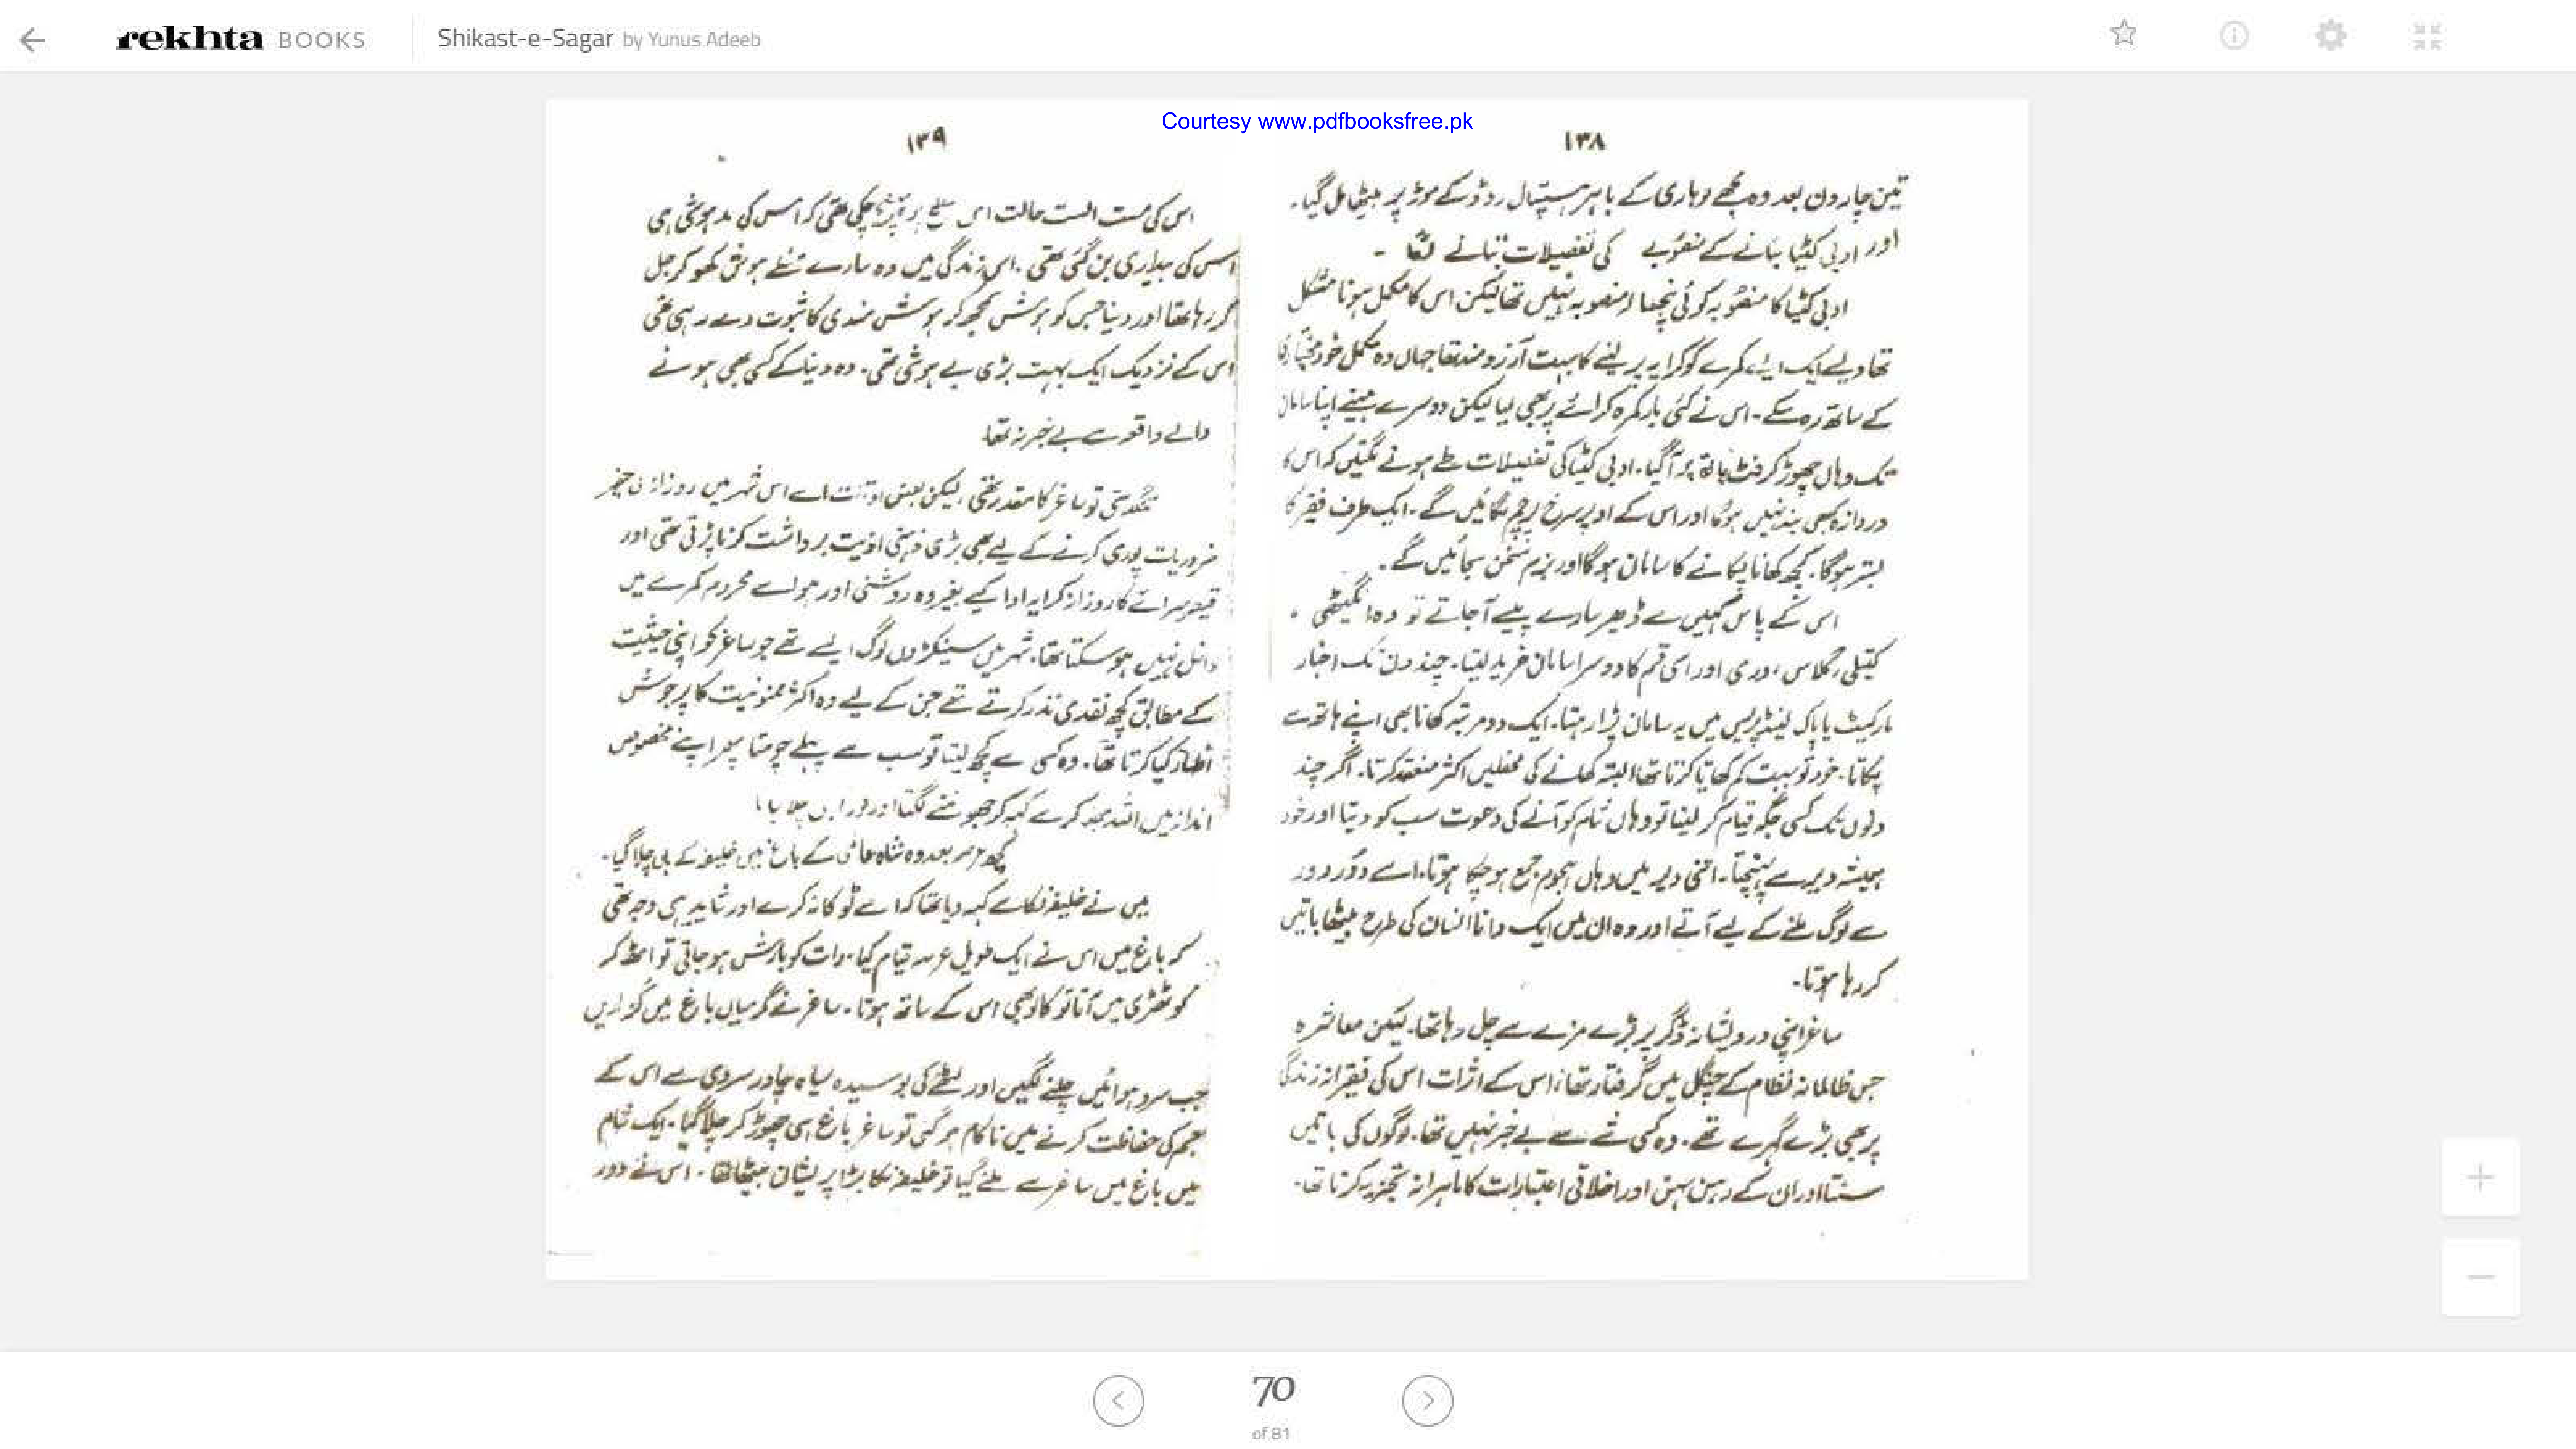 rekhta BOOKS
Shikast-e-Sagar by Yunus Adeeb
Courtesy www.pdfbooksfree.pk
۱۳۸
تین چار دن بعد وہ مجھے لوہاری کے باہر ہسپتال روڈ کے موڑ پر بیٹھا مل گیا۔
اور ادبی کٹیا بنانے کے منصوبے کی تفصیلات بتانے لگا -
ادبی کٹیا کا منصوبہ کوئی پنجسالہ منصوبہ نہیں تھا لیکن اس کا مکمل ہونا مشکل
تھا ویسے ایک ایسے کمرے کو کرایہ پر لینے کا بہت آرزو مند تھا جہاں وہ مکمل خود مختاری
کے ساتھ رہ سکے۔ اس نے کئی بار کمرہ کرائے پر بھی لیا لیکن دوسرے مہینے اپنا سامان
تک وہاں چھوڑ کر فٹ پاتھ پر آ گیا۔ ادبی کٹیا کی تفصیلات طے ہونے لگتیں کہ اس کا
دروازہ کبھی بند نہیں ہوگا اور اس کے اوپر سرخ پرچم لگائیں گے۔ ایک طرف فقیر کا
بستر ہوگا۔ کچھ کھانا پکانے کا سامان ہوگا اور بزم سخن سجائیں گے۔
اس کے پاس کہیں سے ڈھیر سارے پیسے آ جاتے تو وہ انگیٹھی ،
کیتلی، گلاس، دری اور اسی قسم کا دوسرا سامان خرید لیتا۔ چند دن تک اخبار
مارکیٹ یا پاک لینڈ پریس میں یہ سامان پڑا رہتا۔ ایک دو مرتبہ کھانا بھی اپنے ہاتھ سے
پکاتا۔ خود تو بہت کم کھایا کرتا تھا البتہ کھانے کی محفلیں اکثر منعقد کرتا۔ اگر چند
دنوں تک کسی جگہ قیام کر لیتا تو وہاں شام کو آنے کی دعوت سب کو دیتا اور خود
ہمیشہ دیر سے پہنچتا۔ اتنی دیر میں وہاں ہجوم جمع ہو چکا ہوتا۔ اسے دور دور
سے لوگ ملنے کے لیے آتے اور وہ ان میں ایک دانا انسان کی طرح بیٹھا باتیں
کر رہا ہوتا۔
ساغر اپنی درویشانہ ڈگر پر بڑے مزے سے چل رہا تھا۔ لیکن معاشرہ
جس ظالمانہ نظام کے چنگل میں گرفتار تھا، اس کے اثرات اس کی فقیرانہ زندگی
پر بھی بڑے گہرے تھے۔ وہ کسی شے سے بے خبر نہیں تھا۔ لوگوں کی باتیں
سنتا اور ان کے رہن سہن اور اخلاقی اعتبارات کا ماہرانہ تجزیہ کرتا تھا۔
۱۳۹
اس کی مست الست حالت اس سطح پر پہنچ چکی تھی کہ اس کی مدہوشی ہی
اس کی بیداری بن گئی تھی۔ اس زندگی میں وہ سارے مسئلے ہوش کھو کر حل
کر رہا تھا اور دنیا جس کو ہوش سمجھ کر ہوش مندی کا ثبوت دے رہی تھی
اس کے نزدیک ایک بہت بڑی بے ہوشی تھی۔ وہ دنیا کے کسی بھی ہونے
والے واقعہ سے بے خبر نہ تھا۔
تنگدستی تو ساغر کا مقدر تھی، لیکن بعض اوقات اسے اس شہر میں روزانہ کی
ضروریات پوری کرنے کے لیے بھی بڑی ذہنی اذیت برداشت کرنا پڑتی تھی اور
سرائے کا روزانہ کرایہ ادا کیے بغیر وہ روشنی اور ہوا سے محروم کمرے میں
داخل نہیں ہو سکتا تھا۔ شہر میں سینکڑوں لوگ ایسے تھے جو ساغر کو اپنی حیثیت
کے مطابق کچھ نقدی نذر کرتے تھے جن کے لیے وہ اکثر ممنونیت کا پرجوش
اظہار کیا کرتا تھا۔ وہ کسی سے کچھ لیتا تو سب سے پہلے چومتا پھر اپنے مخصوص
انداز میں اللہ بھلا کرے کہہ کر جھومنے لگتا اور
کچھ عرصہ بعد وہ شاہ عالمی کے باغ میں خلیفہ کے چلا گیا۔
میں نے خلیفہ نکا سے کہہ دیا تھا کہ اسے ٹوکا نہ کرے اور شاید یہی وجہ تھی
کہ باغ میں اس نے ایک طویل عرصہ قیام کیا۔ رات کو بارش ہو جاتی تو اٹھ کر
کوٹھڑی میں آتا تو بھی اس کے ساتھ ہوتا۔ ساغر نے گرمیاں باغ میں گزاریں
جب سرد ہوائیں چلنے لگیں اور لٹھے کی بوسیدہ سیاہ چادر سردی سے اس کے
جسم کی حفاظت کرنے میں ناکام ہو گئی تو ساغر باغ ہی چھوڑ کر چلا گیا۔ ایک شام
میں باغ میں ساغر سے ملنے گیا تو خلیفہ نکا بڑا پریشان بیٹھا تھا۔ اس نے دور
70
of 81